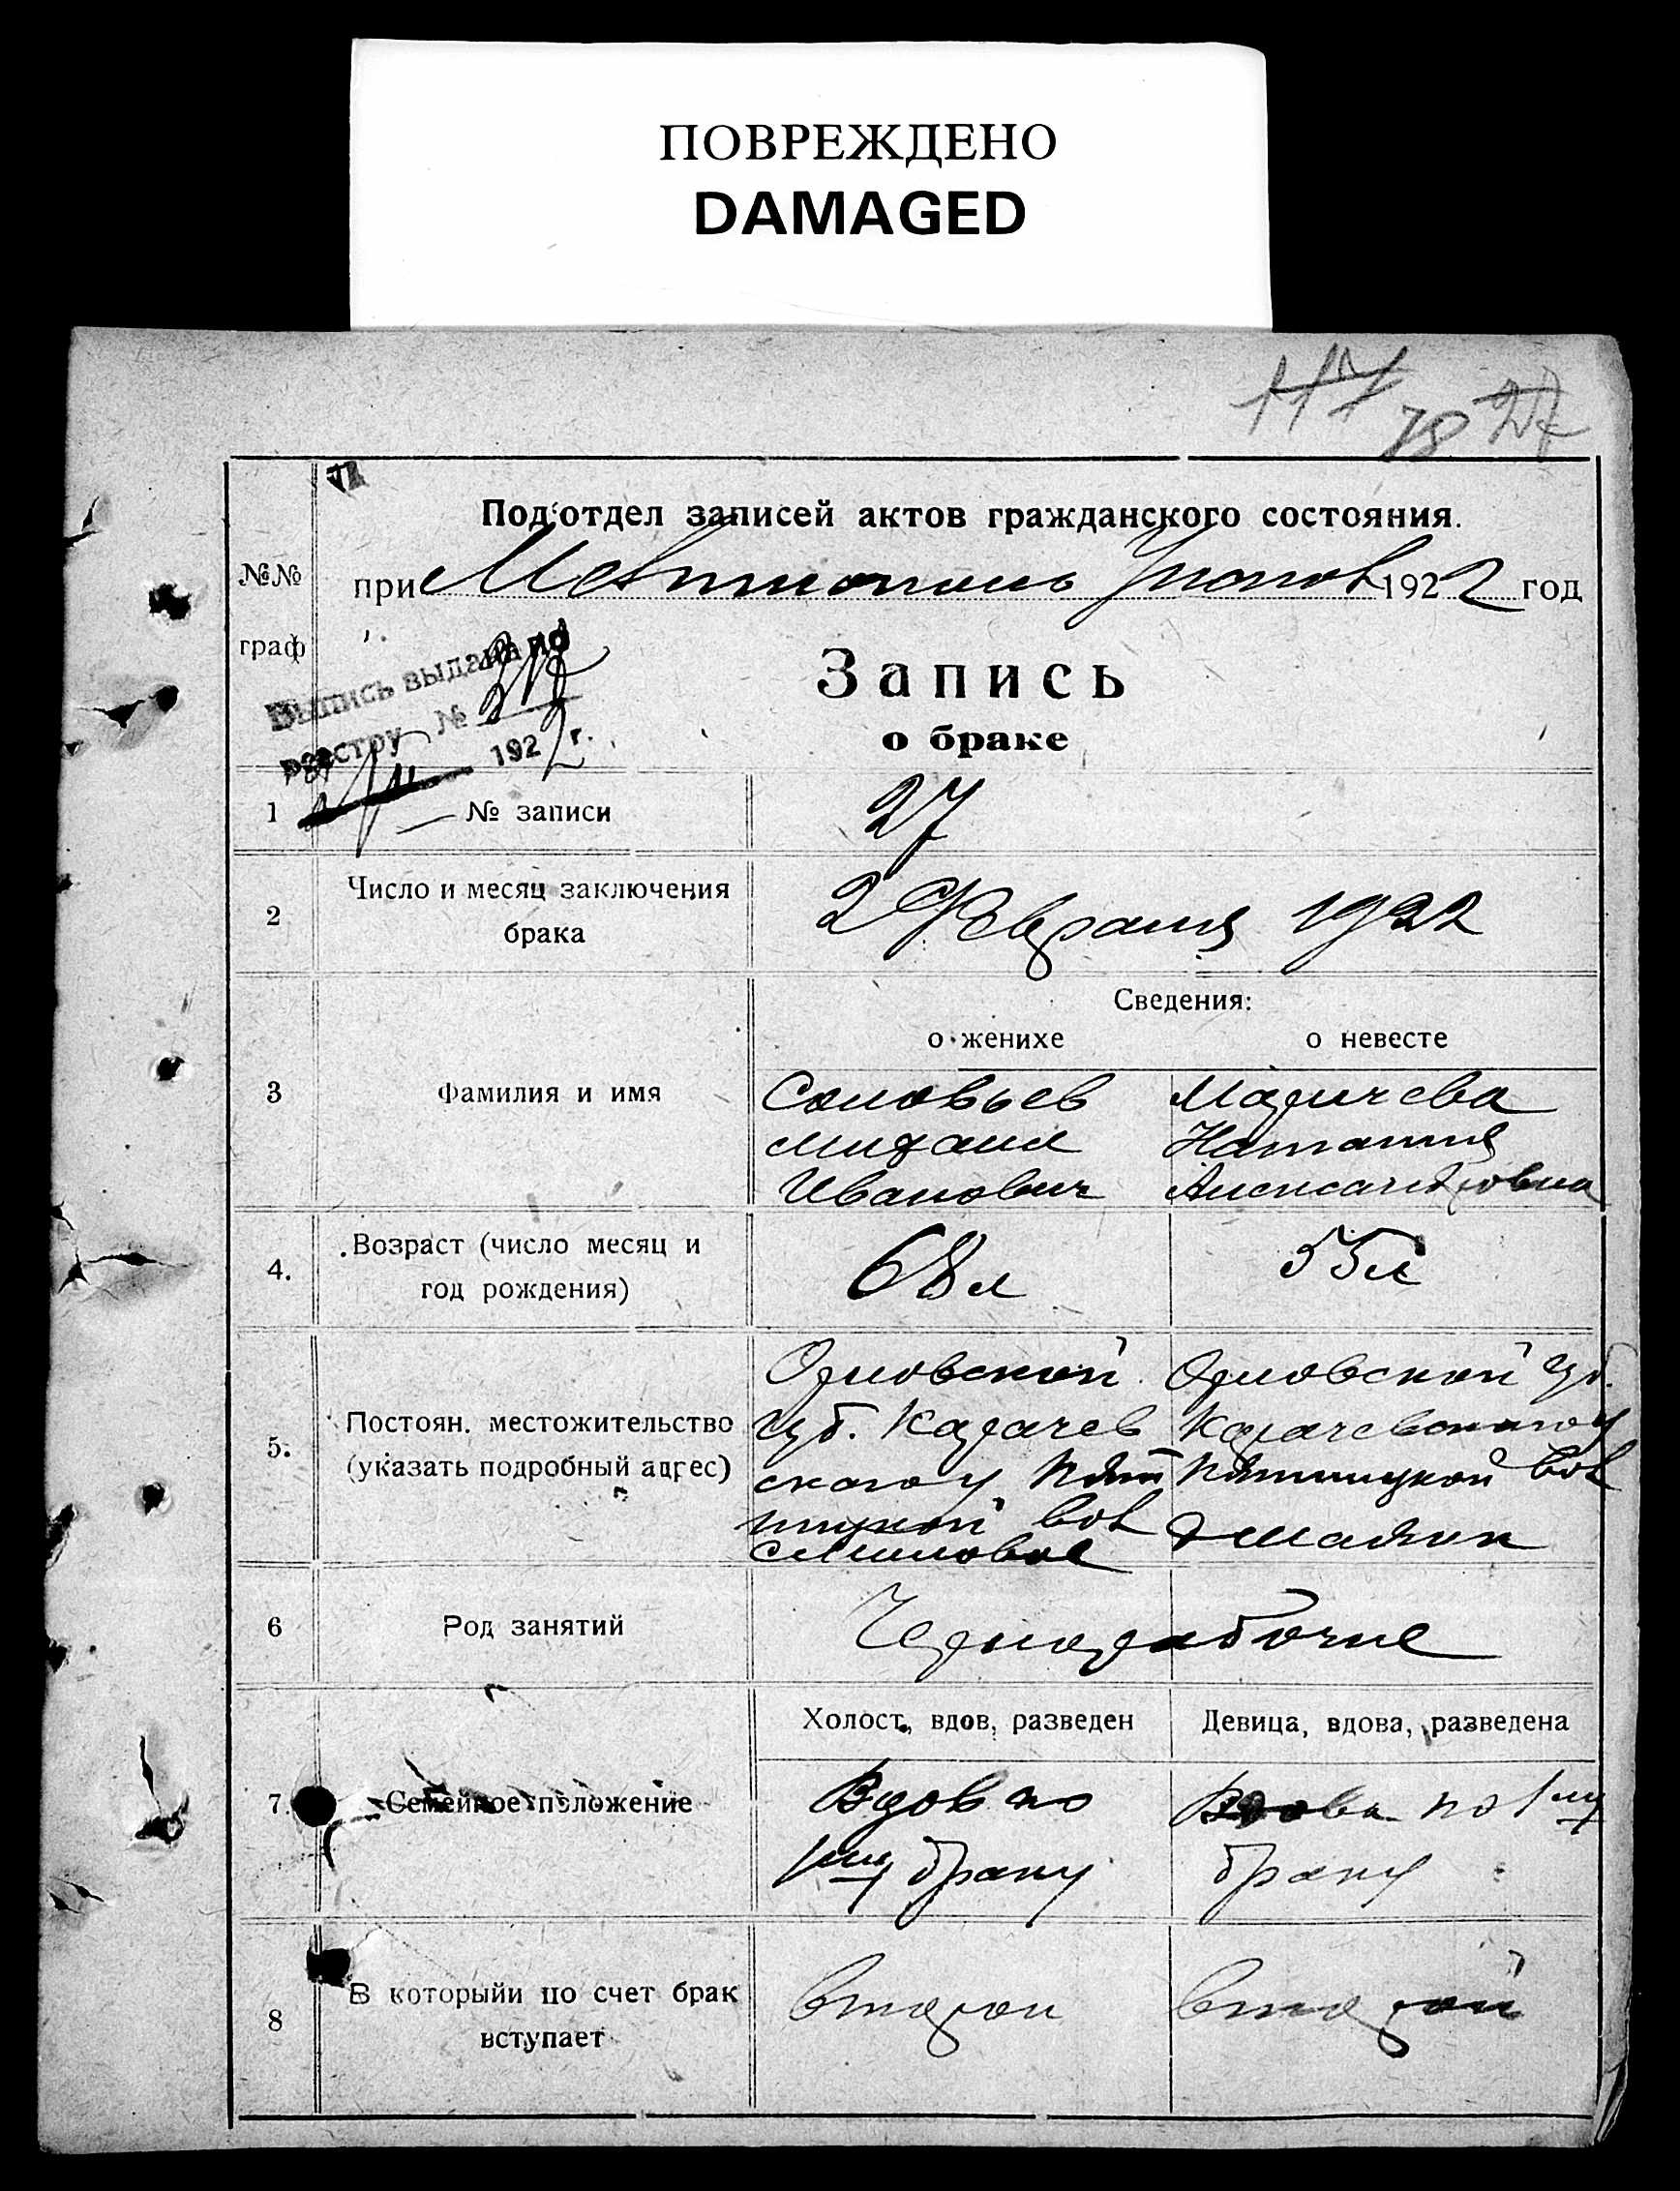 ПОВРЕЖДЕНО
DAMAGED
117 78 27
Под'отдел записей актов гражданского состояния.
№№ граф
при 1922 год
Выпись выдана по
реестру №
1922 г.
Запись
о браке
1 № записи 27
2 Число и месяц заключения брака 2 Февраля 1922
Сведения:
о женихе о невесте
3 Фамилия и имя
Соловьев
Михаил
Иванович
Наталия
Александровна
4. Возраст (число месяц и год рождения) 68 л 55 л
5. Постоян. местожительство (указать подробный адрес)
Орловской
губ. Карачев
ского у Пят
ницкой вол
Орловской губ.
Карачевского у
Пятницкой вол
6 Род занятий Чернорабочие
Холост, вдов, разведен Девица, вдова, разведена
7. Семейное положение
Вдов по
1му браку
Вдова по 1му
браку
8 В которыйи по счет брак вступает второй второй